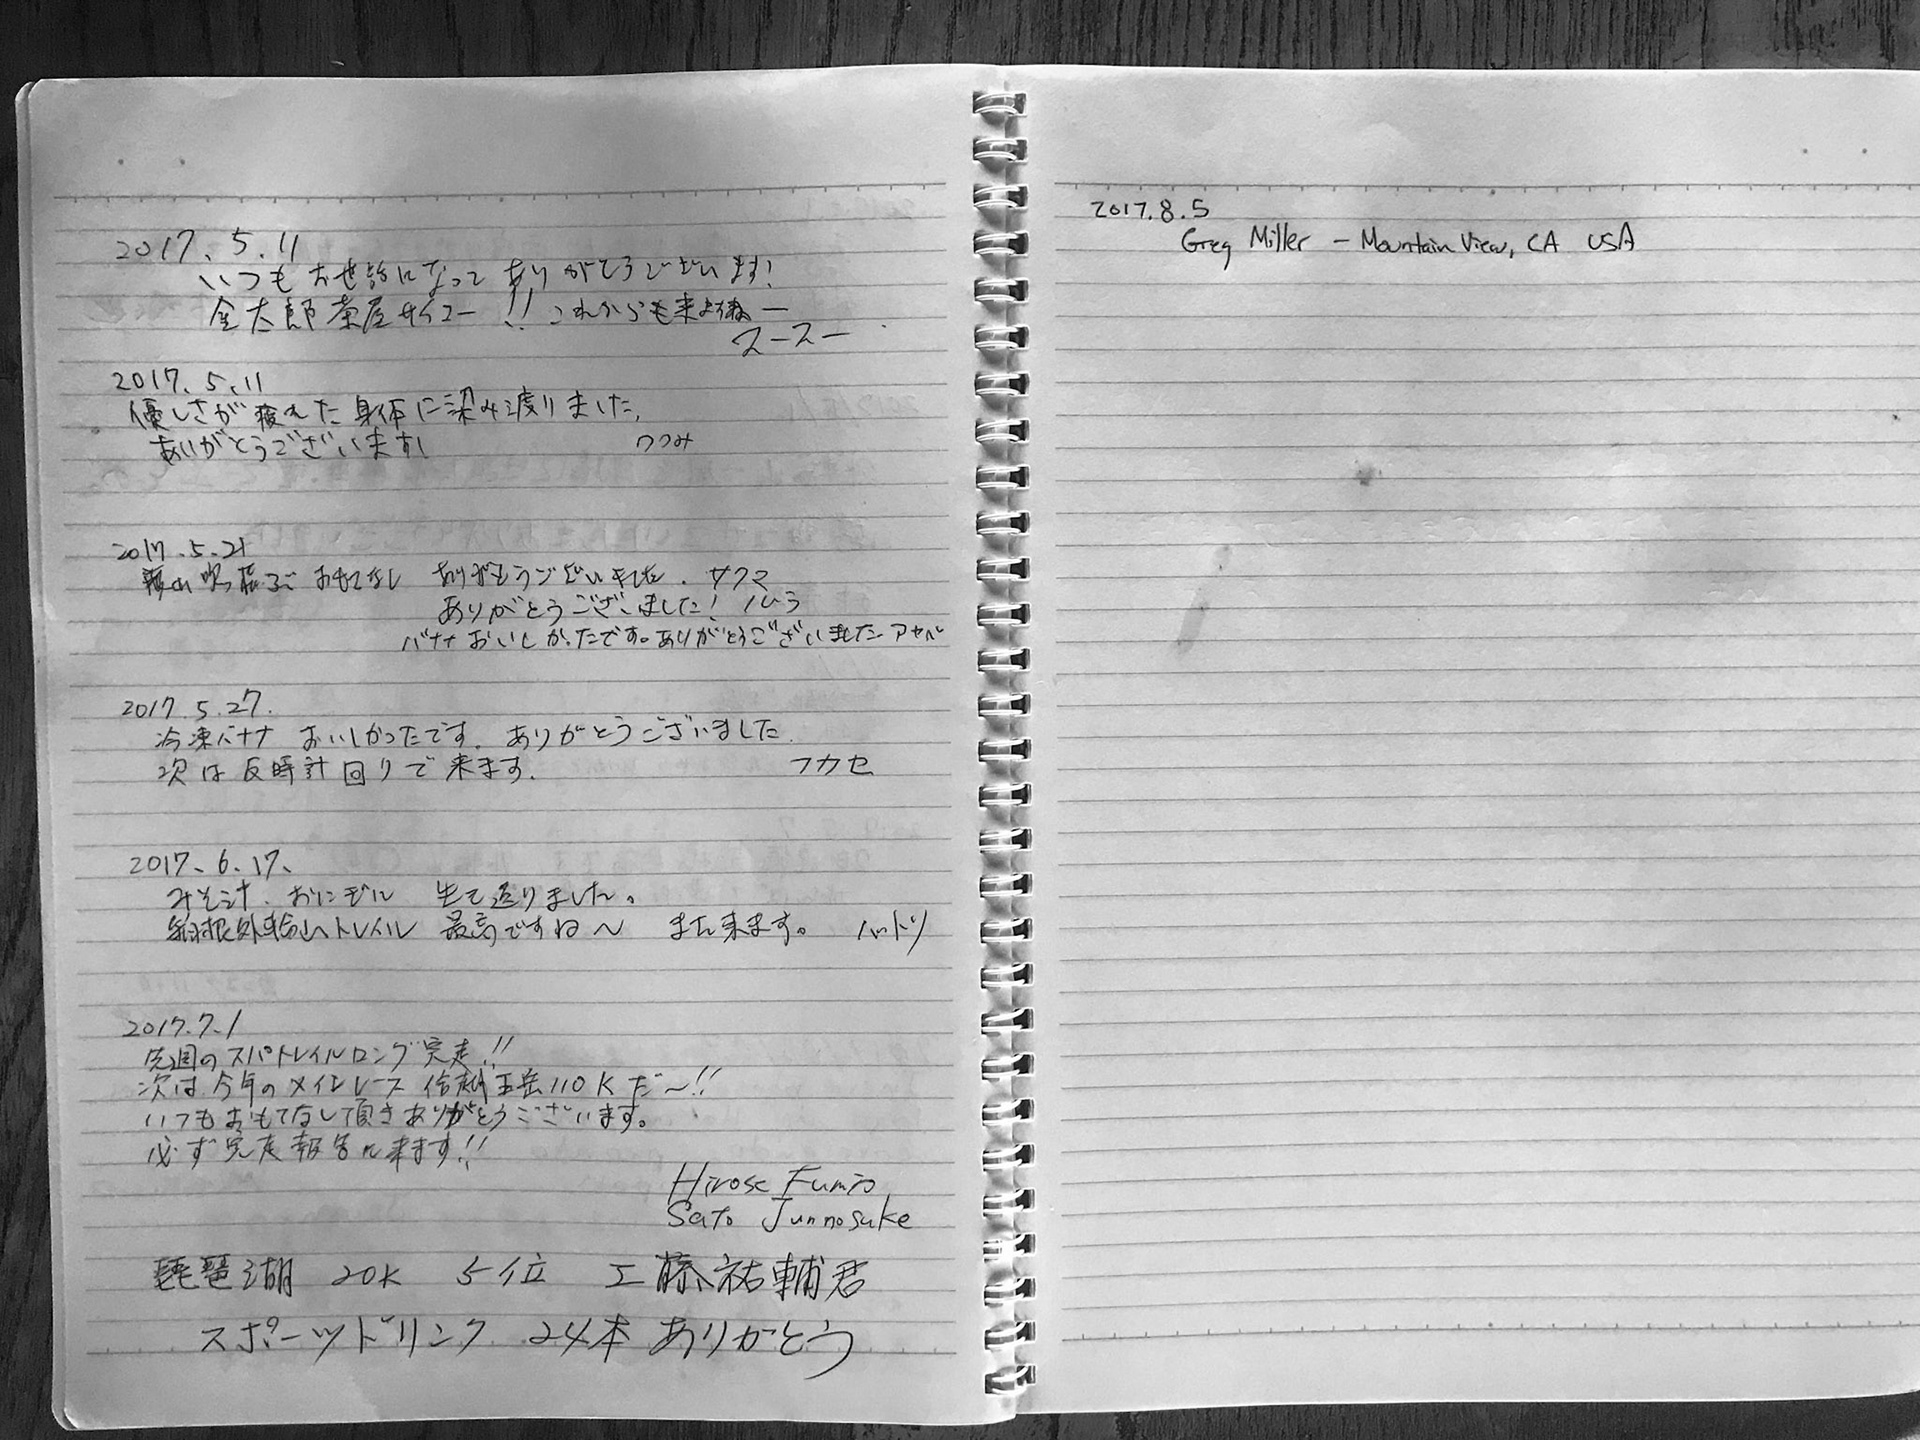 2017.5.11
いつもお世話になってありがとうございます!
金太郎茶屋サイコー!! これからも来よう
スースー
2017.5.11
優しさが疲れた身体に染み渡りました。
ありがとうございます!
2017.5.21
おもてなし ありがとうございました. サクマ
ありがとうございました!
バナナおいしかったです。ありがとうございました
2017.5.27.
冷凍バナナ おいしかったです. ありがとうございました.
次は反時計回りで来ます. フカセ
2017.6.17.
みそ汁. おにぎり 生き返りました。
箱根外輪山トレイル 最高ですね〜 また来ます。 ハットリ
2017.7.1
先週のスパトレイルロング完走!!
次は今年のメインレース 110Kだ〜!!
いつもおもてなして頂きありがとうございます。
必ず完走報告に来ます!!
Hirose Fumio
Sato Junnosuke
琵琶湖 20K 5位 工藤祐輔君
スポーツドリンク 24本 ありがとう
2017.8.5
Greg Miller – Mountain View, CA USA